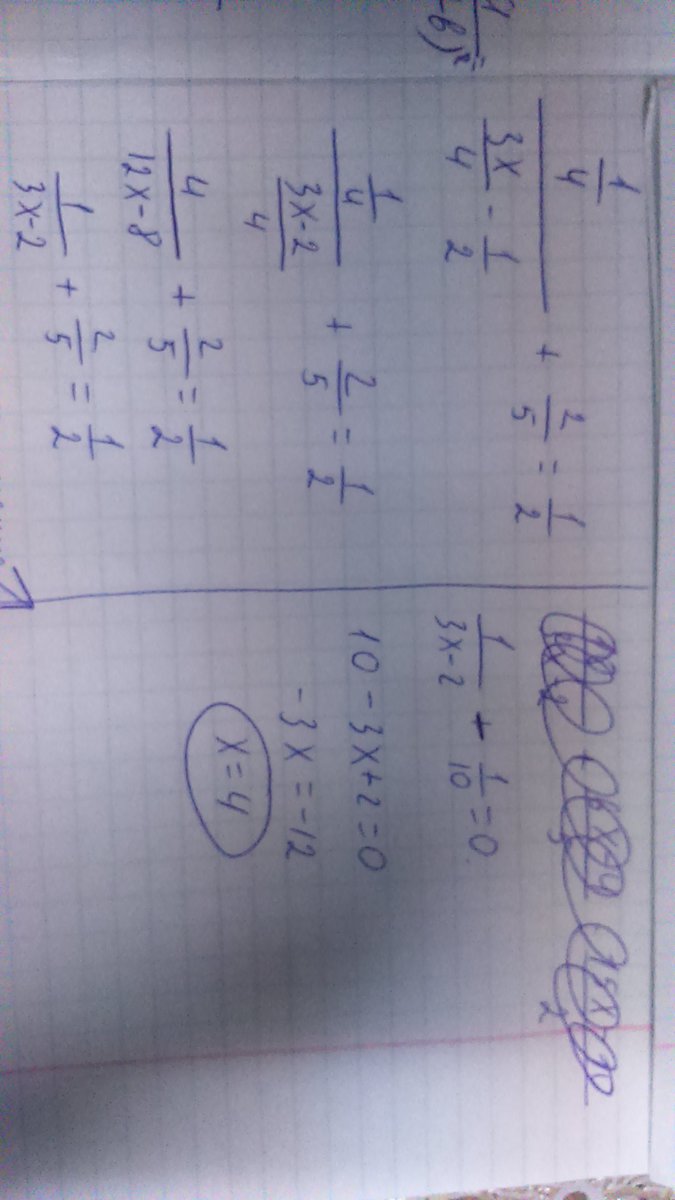 1/4 / (3x/4 - 1/2) + 2/5 = 1/2
1/4 / ((3x-2)/4) + 2/5 = 1/2
4/(12x-8) + 2/5 = 1/2
1/(3x-2) + 2/5 = 1/2
1/(3x-2) - 1/10 = 0
10 - 3x + 2 = 0
-3x = -12
x = 4